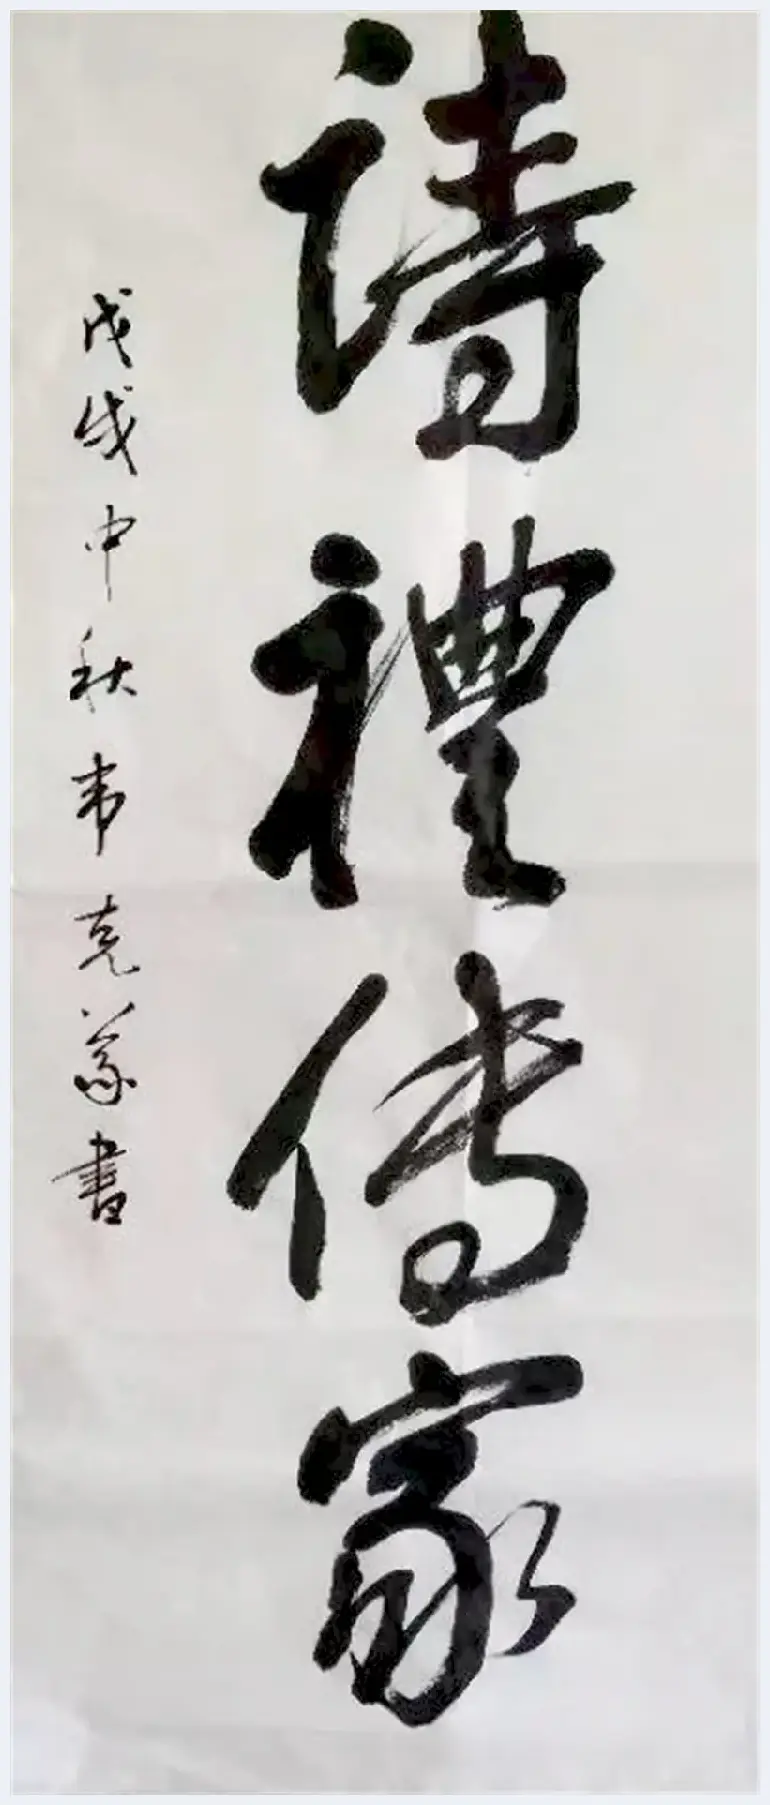 詩禮傳家
戊戌中秋韦克義書